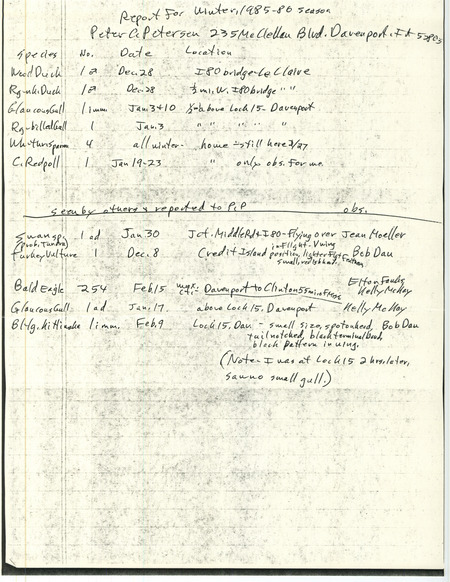 Report For Winter, 1985-86 season
Peter C. Petersen 235 McClellan Blvd. Davenport, IA
Species No. Date Location
Wood Duck 1♂ Dec. 28 I80 bridge - Le Claire
Rg-nk. Duck 1♂ Dec. 28 ½ mi. W. I80 bridge " "
Glaucous Gull 1 imm Jan. 3+10 above Lock 15 - Davenport
Rg-billed Gull 1 Jan. 3 " " " " "
Wh-thr sparrow 4 all winter - home - still here 2/27
C. Redpoll 1 Jan 19-23 " only obs. for me
seen by others & reported to PCP obs.
Swan sp. 1 ad Jan 30 Jct. Middle Rd + I80 - Flying over Jean Moeller
(prob. Tundra)
Turkey Vulture 1 Dec. 8 Credit Island in flight - V wing position, lighter flgt feathers small, red head Bob Dau
Bald Eagle 254 Feb 15 Davenport to Clinton Elton Fawks
Kelly McKay
Glaucous Gull 1 ad Jan. 17 above Lock 15, Davenport Kelly McKay
Bl-lg. Kittiwake 1 imm. Feb. 9 Lock 15, Dav - small size, spot on head, Bob Dau
tail notched, black terminal band,
black pattern in wing.
(Note - I was at Lock 15 2 hrs. later,
saw no small gull.)